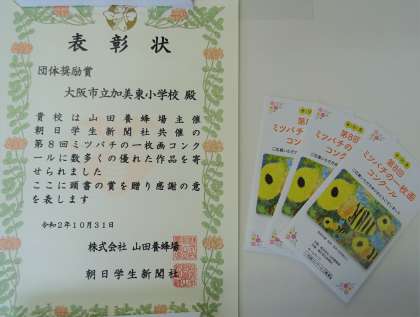 表彰状
団体奨励賞
大阪市立加美東小学校 殿
貴校は山田養蜂場主催
朝日学生新聞社共催の
第8回ミツバチの一枚画コンク
ールに数多くの優れた作品を寄
せられました
ここに頭書の賞を贈り感謝の意
を表します
令和2年10月31日
株式会社 山田養蜂場
朝日学生新聞社
第8回
ミツバチの一枚画
コンクール